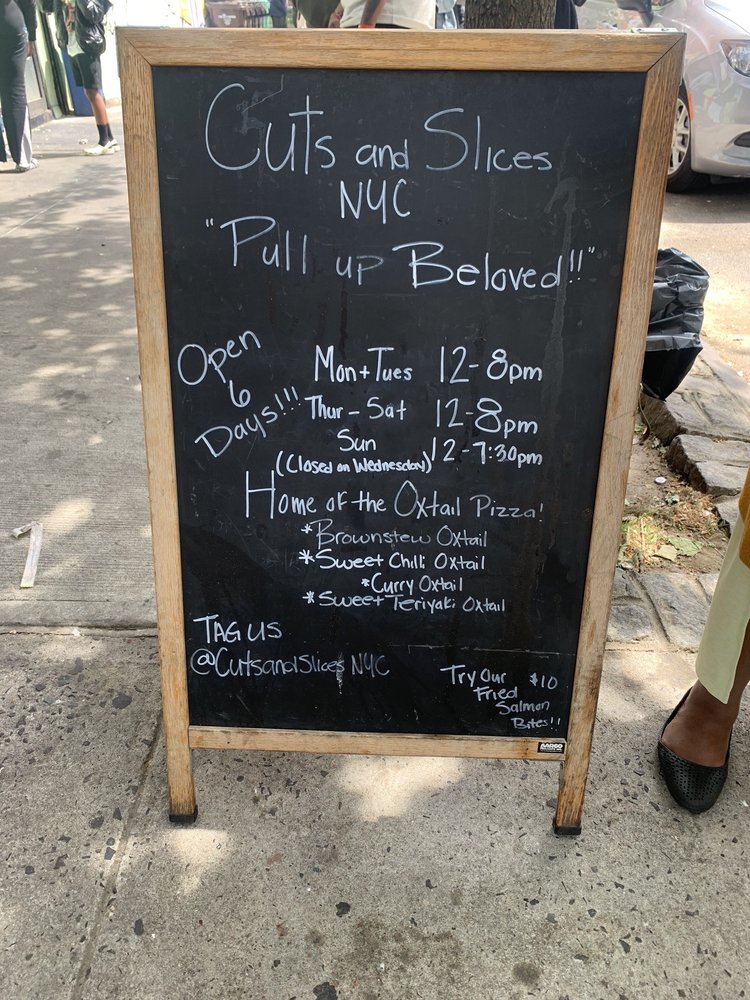 Cuts and Slices
NYC
"Pull up Beloved!!"
Open
6
Days!!!
Mon+Tues 12-8pm
Thur-Sat 12-8pm
Sun 12-7:30pm
(Closed on Wednesday)
Home of the Oxtail Pizza!
*Brownstew Oxtail
*Sweet Chili Oxtail
*Curry Oxtail
*Sweet Teriyaki Oxtail
TAG US
@CutsandSlices NYC
Try Our $10
Fried
Salmon
Bites!!